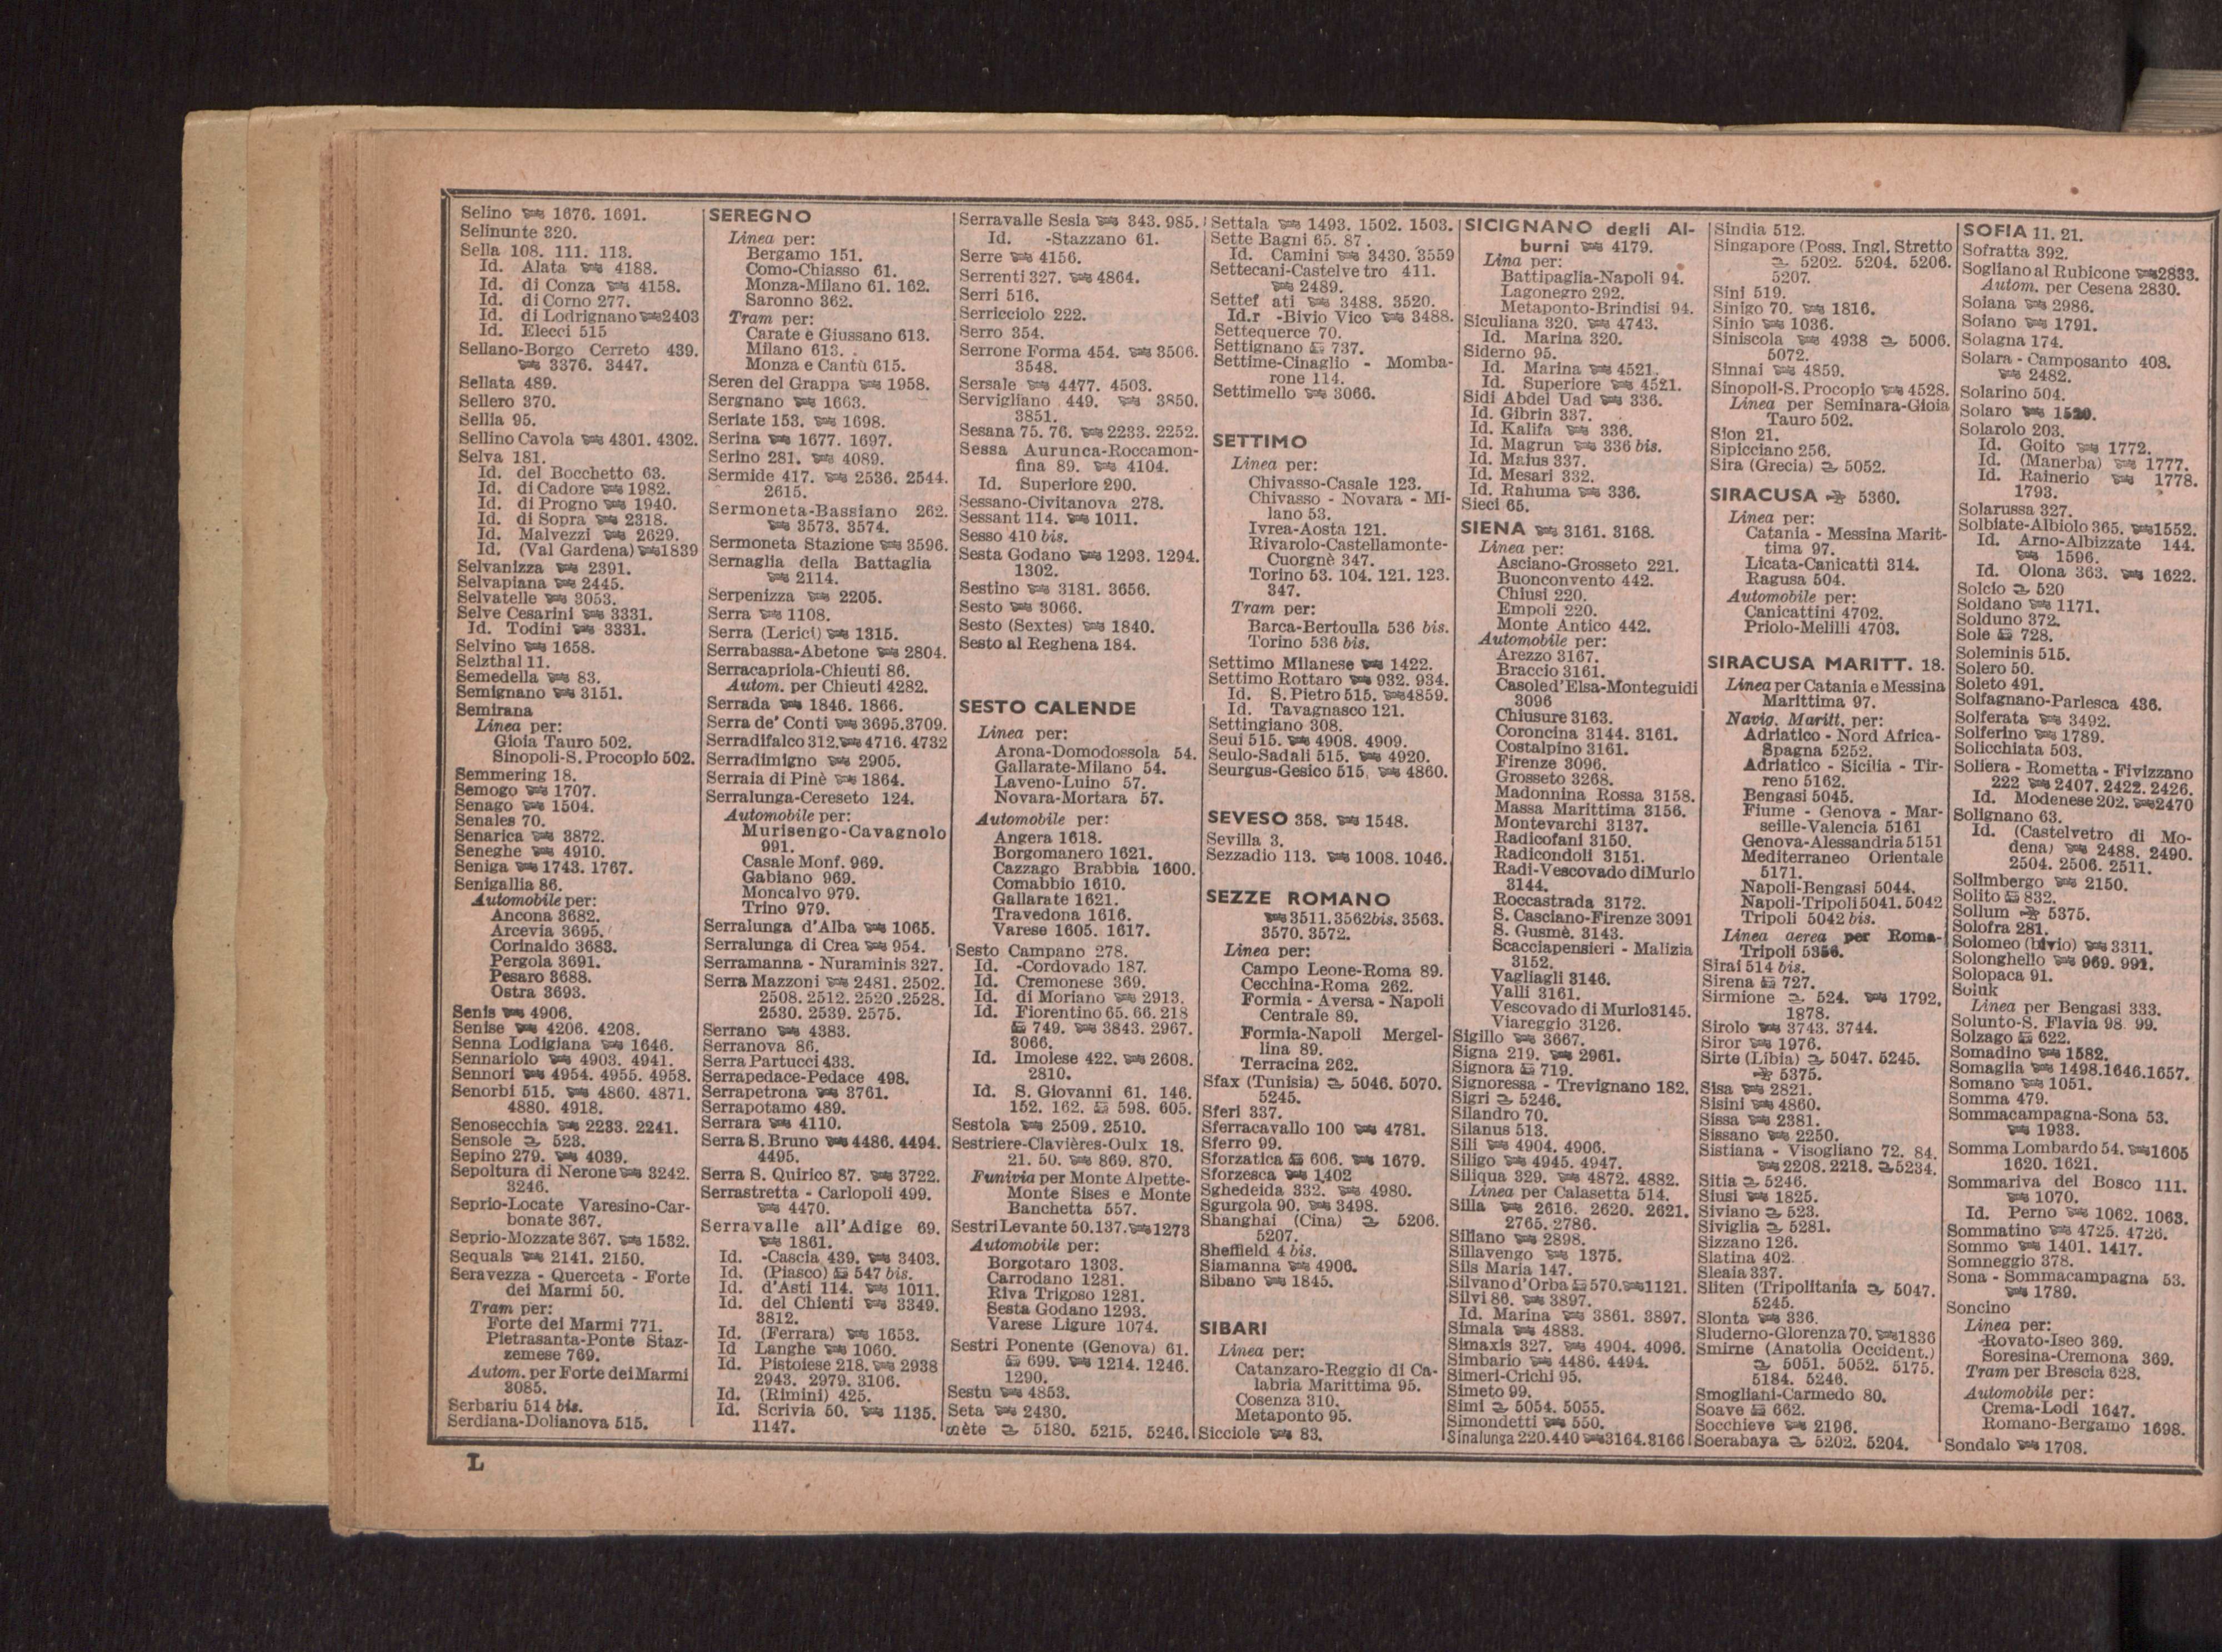 Selino 1676. 1691.
Selinunte 320.
Sella 108. 111. 113.
Id. Alata 4188.
Id. di Conza 4158.
Id. di Corno 277.
Id. di Lodrignano 2403
Id. Elecci 515
Sellano-Borgo Cerreto 439.
3376. 3447.
Sellata 489.
Sellero 370.
Sellia 95.
Sellino Cavola 4301. 4302.
Selva 181.
Id. del Bocchetto 63.
Id. di Cadore 1982.
Id. di Progno 1940.
Id. di Sopra 2318.
Id. Malvezzi 2629.
Id. (Val Gardena) 1839
Selvanizza 2391.
Selvapiana 2445.
Selvatelle 3053.
Selve Cesarini 3331.
Id. Todini 3331.
Selvino 1658.
Selzthal 11.
Semedella 83.
Semignano 3151.
Semirana
Linea per:
Gioia Tauro 502.
Sinopoli-S. Procopio 502.
Semmering 18.
Semogo 1707.
Senago 1504.
Senales 70.
Senarica 3872.
Seneghe 4910.
Seniga 1743. 1767.
Senigallia 86.
Automobile per:
Ancona 3682.
Arcevia 3695.
Corinaldo 3683.
Pergola 3691.
Pesaro 3688.
Ostra 3693.
Senis 4906.
Senise 4206. 4208.
Senna Lodigiana 1646.
Sennariolo 4903. 4941.
Sennori 4954. 4955. 4958.
Senorbì 515. 4860. 4871.
4880. 4918.
Senosecchia 2233. 2241.
Sensole 523.
Sepino 279. 4039.
Sepoltura di Nerone 3242.
3246.
Seprio-Locate Varesino-Car-
bonate 367.
Seprio-Mozzate 367. 1532.
Sequals 2141. 2150.
Seravezza - Querceta - Forte
dei Marmi 50.
Tram per:
Forte dei Marmi 771.
Pietrasanta-Ponte Staz-
zemese 769.
Autom. per Forte dei Marmi
3085.
Serbariu 514 bis.
Serdiana-Dolianova 515.
SEREGNO
Linea per:
Bergamo 151.
Como-Chiasso 61.
Monza-Milano 61. 162.
Saronno 362.
Tram per:
Carate e Giussano 613.
Milano 613.
Monza e Cantù 615.
Seren del Grappa 1958.
Sergnano 1663.
Seriate 153. 1698.
Serina 1677. 1697.
Serino 281. 4089.
Sermide 417. 2536. 2544.
2615.
Sermoneta-Bassiano 262.
3573. 3574.
Sermoneta Stazione 3596.
Sernaglia della Battaglia
2114.
Serpenizza 2205.
Serra 1108.
Serra (Lerici) 1315.
Serrabassa-Abetone 2804.
Serracapriola-Chieuti 86.
Autom. per Chieuti 4282.
Serrada 1846. 1866.
Serra de' Conti 3695.3709.
Serradifalco 312. 4716. 4732
Serradimigno 2905.
Serraia di Pinè 1864.
Serralunga-Cereseto 124.
Automobile per:
Murisengo-Cavagnolo
991.
Casale Monf. 969.
Gabiano 969.
Moncalvo 979.
Trino 979.
Serralunga d'Alba 1065.
Serralunga di Crea 954.
Serramanna - Nuraminis 327.
Serra Mazzoni 2481. 2502.
2508. 2512. 2520. 2528.
2530. 2539. 2575.
Serrano 4383.
Serranova 86.
Serra Partucci 433.
Serrapedace-Pedace 498.
Serrapetrona 3761.
Serrapotamo 489.
Serrara 4110.
Serra S. Bruno 4486. 4494.
4495.
Serra S. Quirico 87. 3722.
Serrastretta - Carlopoli 499.
4470.
Serravalle all'Adige 69.
1861.
Id. -Cascia 439. 3403.
Id. (Piasco) 547 bis.
Id. d'Asti 114. 1011.
Id. del Chienti 3349.
3812.
Id. (Ferrara) 1653.
Id Langhe 1060.
Id. Pistoiese 218. 2938
2943. 2979. 3106.
Id. (Rimini) 425.
Id. Scrivia 50. 1135.
1147.
Serravalle Sesia 343. 985.
Id. -Stazzano 61.
Serre 4156.
Serrenti 327. 4864.
Serri 516.
Serricciolo 222.
Serro 354.
Serrone Forma 454. 3506.
3548.
Sersale 4477. 4503.
Servigliano 449. 3850.
3851.
Sesana 75. 76. 2233. 2252.
Sessa Aurunca-Roccamon-
fina 89. 4104.
Id. Superiore 290.
Sessano-Civitanova 278.
Sessant 114. 1011.
Sesso 410 bis.
Sesta Godano 1293. 1294.
1302.
Sestino 3181. 3656.
Sesto 3066.
Sesto (Sextes) 1840.
Sesto al Reghena 184.
SESTO CALENDE
Linea per:
Arona-Domodossola 54.
Gallarate-Milano 54.
Laveno-Luino 57.
Novara-Mortara 57.
Automobile per:
Angera 1618.
Borgomanero 1621.
Cazzago Brabbia 1600.
Comabbio 1610.
Gallarate 1621.
Travedona 1616.
Varese 1605. 1617.
Sesto Campano 278.
Id. -Cordovado 187.
Id. Cremonese 369.
Id. di Moriano 2913.
Id. Fiorentino 65. 66. 218
749. 3843. 2967.
3066.
Id. Imolese 422. 2608.
2810.
Id. S. Giovanni 61. 146.
152. 162. 598. 605.
Sestola 2509. 2510.
Sestriere-Clavières-Oulx 18.
21. 50. 869. 870.
Funivia per Monte Alpette-
Monte Sises e Monte
Banchetta 557.
Sestri Levante 50.137. 1273
Automobile per:
Borgotaro 1303.
Carrodano 1281.
Riva Trigoso 1281.
Sesta Godano 1293.
Varese Ligure 1074.
Sestri Ponente (Genova) 61.
699. 1214. 1246.
1290.
Sestu 4853.
Seta 2430.
Sète 5180. 5215. 5246.
Settala 1493. 1502. 1503.
Sette Bagni 65. 87.
Id. Camini 3430. 3559
Settecani-Castelvetro 411.
2489.
Settef ati 3488. 3520.
Id.r -Bivio Vico 3488.
Settequerce 70.
Settignano 737.
Settime-Cinaglio - Momba-
rone 114.
Settimello 3066.
SETTIMO
Linea per:
Chivasso-Casale 123.
Chivasso - Novara - Mi-
lano 53.
Ivrea-Aosta 121.
Rivarolo-Castellamonte-
Cuorgnè 347.
Torino 53. 104. 121. 123.
347.
Tram per:
Barca-Bertoulla 536 bis.
Torino 536 bis.
Settimo Milanese 1422.
Settimo Rottaro 932. 934.
Id. S. Pietro 515. 4859.
Id. Tavagnasco 121.
Settingiano 308.
Seui 515. 4908. 4909.
Seulo-Sadali 515. 4920.
Seurgus-Gesico 515. 4860.
SEVESO 358. 1548.
Sevilla 3.
Sezzadio 113. 1008. 1046.
SEZZE ROMANO
3511. 3562bis. 3563.
3570. 3572.
Linea per:
Campo Leone-Roma 89.
Cecchina-Roma 262.
Formia - Aversa - Napoli
Centrale 89.
Formia-Napoli Mergel-
lina 89.
Terracina 262.
Sfax (Tunisia) 5046. 5070.
5245.
Sferi 337.
Sferracavallo 100 4781.
Sferro 99.
Sforzatica 606. 1679.
Sforzesca 1402
Sghedeida 332. 4980.
Sgurgola 90. 3498.
Shanghai (Cina) 5206.
5207.
Sheffield 4 bis.
Siamanna 4906.
Sibano 1845.
SIBARI
Linea per:
Catanzaro-Reggio di Ca-
labria Marittima 95.
Cosenza 310.
Metaponto 95.
Sicciole 83.
SICIGNANO degli Al-
burni 4179.
Lina per:
Battipaglia-Napoli 94.
Lagonegro 292.
Metaponto-Brindisi 94.
Siculiana 320. 4743.
Id. Marina 320.
Siderno 95.
Id. Marina 4521.
Id. Superiore 4521.
Sidi Abdel Uad 336.
Id. Gibrin 337.
Id. Kalifa 336.
Id. Magrun 336 bis.
Id. Maius 337.
Id. Mesari 332.
Id. Rahuma 336.
Sieci 65.
SIENA 3161. 3168.
Linea per:
Asciano-Grosseto 221.
Buonconvento 442.
Chiusi 220.
Empoli 220.
Monte Antico 442.
Automobile per:
Arezzo 3167.
Braccio 3161.
Casoled'Elsa-Monteguidi
3096
Chiusure 3163.
Coroncina 3144. 3161.
Costalpino 3161.
Firenze 3096.
Grosseto 3268.
Madonnina Rossa 3158.
Massa Marittima 3156.
Montevarchi 3137.
Radicofani 3150.
Radicondoli 3151.
Radi-Vescovado diMurlo
3144.
Roccastrada 3172.
S. Casciano-Firenze 3091
S. Gusmè. 3143.
Scacciapensieri - Malizia
3152.
Vagliagli 3146.
Valli 3161.
Vescovado di Murlo3145.
Viareggio 3126.
Sigillo 3667.
Signa 219. 2961.
Signora 719.
Signoressa - Trevignano 182.
Sigri 5246.
Silandro 70.
Silanus 513.
Sili 4904. 4906.
Siligo 4945. 4947.
Siliqua 329. 4872. 4882.
Linea per Calasetta 514.
Silla 2616. 2620. 2621.
2765. 2786.
Sillano 2898.
Sillavengo 1375.
Sils Maria 147.
Silvano d'Orba 570. 1121.
Silvi 86. 3897.
Id. Marina 3861. 3897.
Simala 4883.
Simaxis 327. 4904. 4096.
Simbario 4486. 4494.
Simeri-Crichi 95.
Simeto 99.
Simi 5054. 5055.
Simondetti 550.
Sinalunga 220.440 3164.3166
Sindia 512.
Singapore (Poss. Ingl. Stretto
5202. 5204. 5206.
5207.
Sini 519.
Sinigo 70. 1816.
Sinio 1036.
Siniscola 4938 5006.
5072.
Sinnai 4859.
Sinopoli-S. Procopio 4528.
Linea per Seminara-Gioia
Tauro 502.
Sion 21.
Sipicciano 256.
Sira (Grecia) 5052.
SIRACUSA 5360.
Linea per:
Catania - Messina Marit-
tima 97.
Licata-Canicattì 314.
Ragusa 504.
Automobile per:
Canicattini 4702.
Priolo-Melilli 4703.
SIRACUSA MARITT. 18.
Linea per Catania e Messina
Marittima 97.
Navig. Maritt. per:
Adriatico - Nord Africa-
Spagna 5252.
Adriatico - Sicilia - Tir-
reno 5162.
Bengasi 5045.
Fiume - Genova - Mar-
seille-Valencia 5161
Genova-Alessandria 5151
Mediterraneo Orientale
5171.
Napoli-Bengasi 5044.
Napoli-Tripoli 5041. 5042
Tripoli 5042 bis.
Linea aerea per Roma-
Tripoli 5356.
Sirai 514 bis.
Sirena 727.
Sirmione 524. 1792.
1878.
Sirolo 3743. 3744.
Siror 1976.
Sirte (Libia) 5047. 5245.
5375.
Sisa 2821.
Sisini 4860.
Sissa 2381.
Sissano 2250.
Sistiana - Visogliano 72. 84.
2208. 2218. 5234.
Sitia 5246.
Siusi 1825.
Siviano 523.
Siviglia 5281.
Sizzano 126.
Slatina 402.
Sleaia 337.
Sliten (Tripolitania 5047.
5245.
Slonta 336.
Sluderno-Glorenza 70. 1836
Smirne (Anatolia Occident.)
5051. 5052. 5175.
5184. 5246.
Smogliani-Carmedo 80.
Soave 662.
Socchieve 2196.
Soerabaya 5202. 5204.
SOFIA 11. 21.
Sofratta 392.
Sogliano al Rubicone 2833.
Autom. per Cesena 2830.
Soiana 2986.
Soiano 1791.
Solagna 174.
Solara - Camposanto 408.
2482.
Solarino 504.
Solaro 1520.
Solarolo 203.
Id. Goito 1772.
Id. (Manerba) 1777.
Id. Rainerio 1778.
1793.
Solarussa 327.
Solbiate-Albiolo 365. 1552.
Id. Arno-Albizzate 144.
1596.
Id. Olona 363. 1622.
Solcio 520
Soldano 1171.
Solduno 372.
Sole 728.
Soleminis 515.
Solero 50.
Soleto 491.
Solfagnano-Parlesca 436.
Solferata 3492.
Solferino 1789.
Solicchiata 503.
Soliera - Rometta - Fivizzano
222 2407. 2422. 2426.
Id. Modenese 202. 2470
Solignano 63.
Id. (Castelvetro di Mo-
dena) 2488. 2490.
2504. 2506. 2511.
Solimbergo 2150.
Solito 832.
Sollum 5375.
Solofra 281.
Solomeo (bivio) 3311.
Solonghello 969. 991.
Solopaca 91.
Soluk
Linea per Bengasi 333.
Solunto-S. Flavia 98. 99.
Solzago 622.
Somadino 1582.
Somaglia 1498.1646.1657.
Somano 1051.
Somma 479.
Sommacampagna-Sona 53.
1933.
Somma Lombardo 54. 1605
1620. 1621.
Sommariva del Bosco 111.
1070.
Id. Perno 1062. 1063.
Sommatino 4725. 4726.
Sommo 1401. 1417.
Somneggio 378.
Sona - Sommacampagna 53.
1789.
Soncino
Linea per:
Rovato-Iseo 369.
Soresina-Cremona 369.
Tram per Brescia 628.
Automobile per:
Crema-Lodi 1647.
Romano-Bergamo 1698.
Sondalo 1708.
L